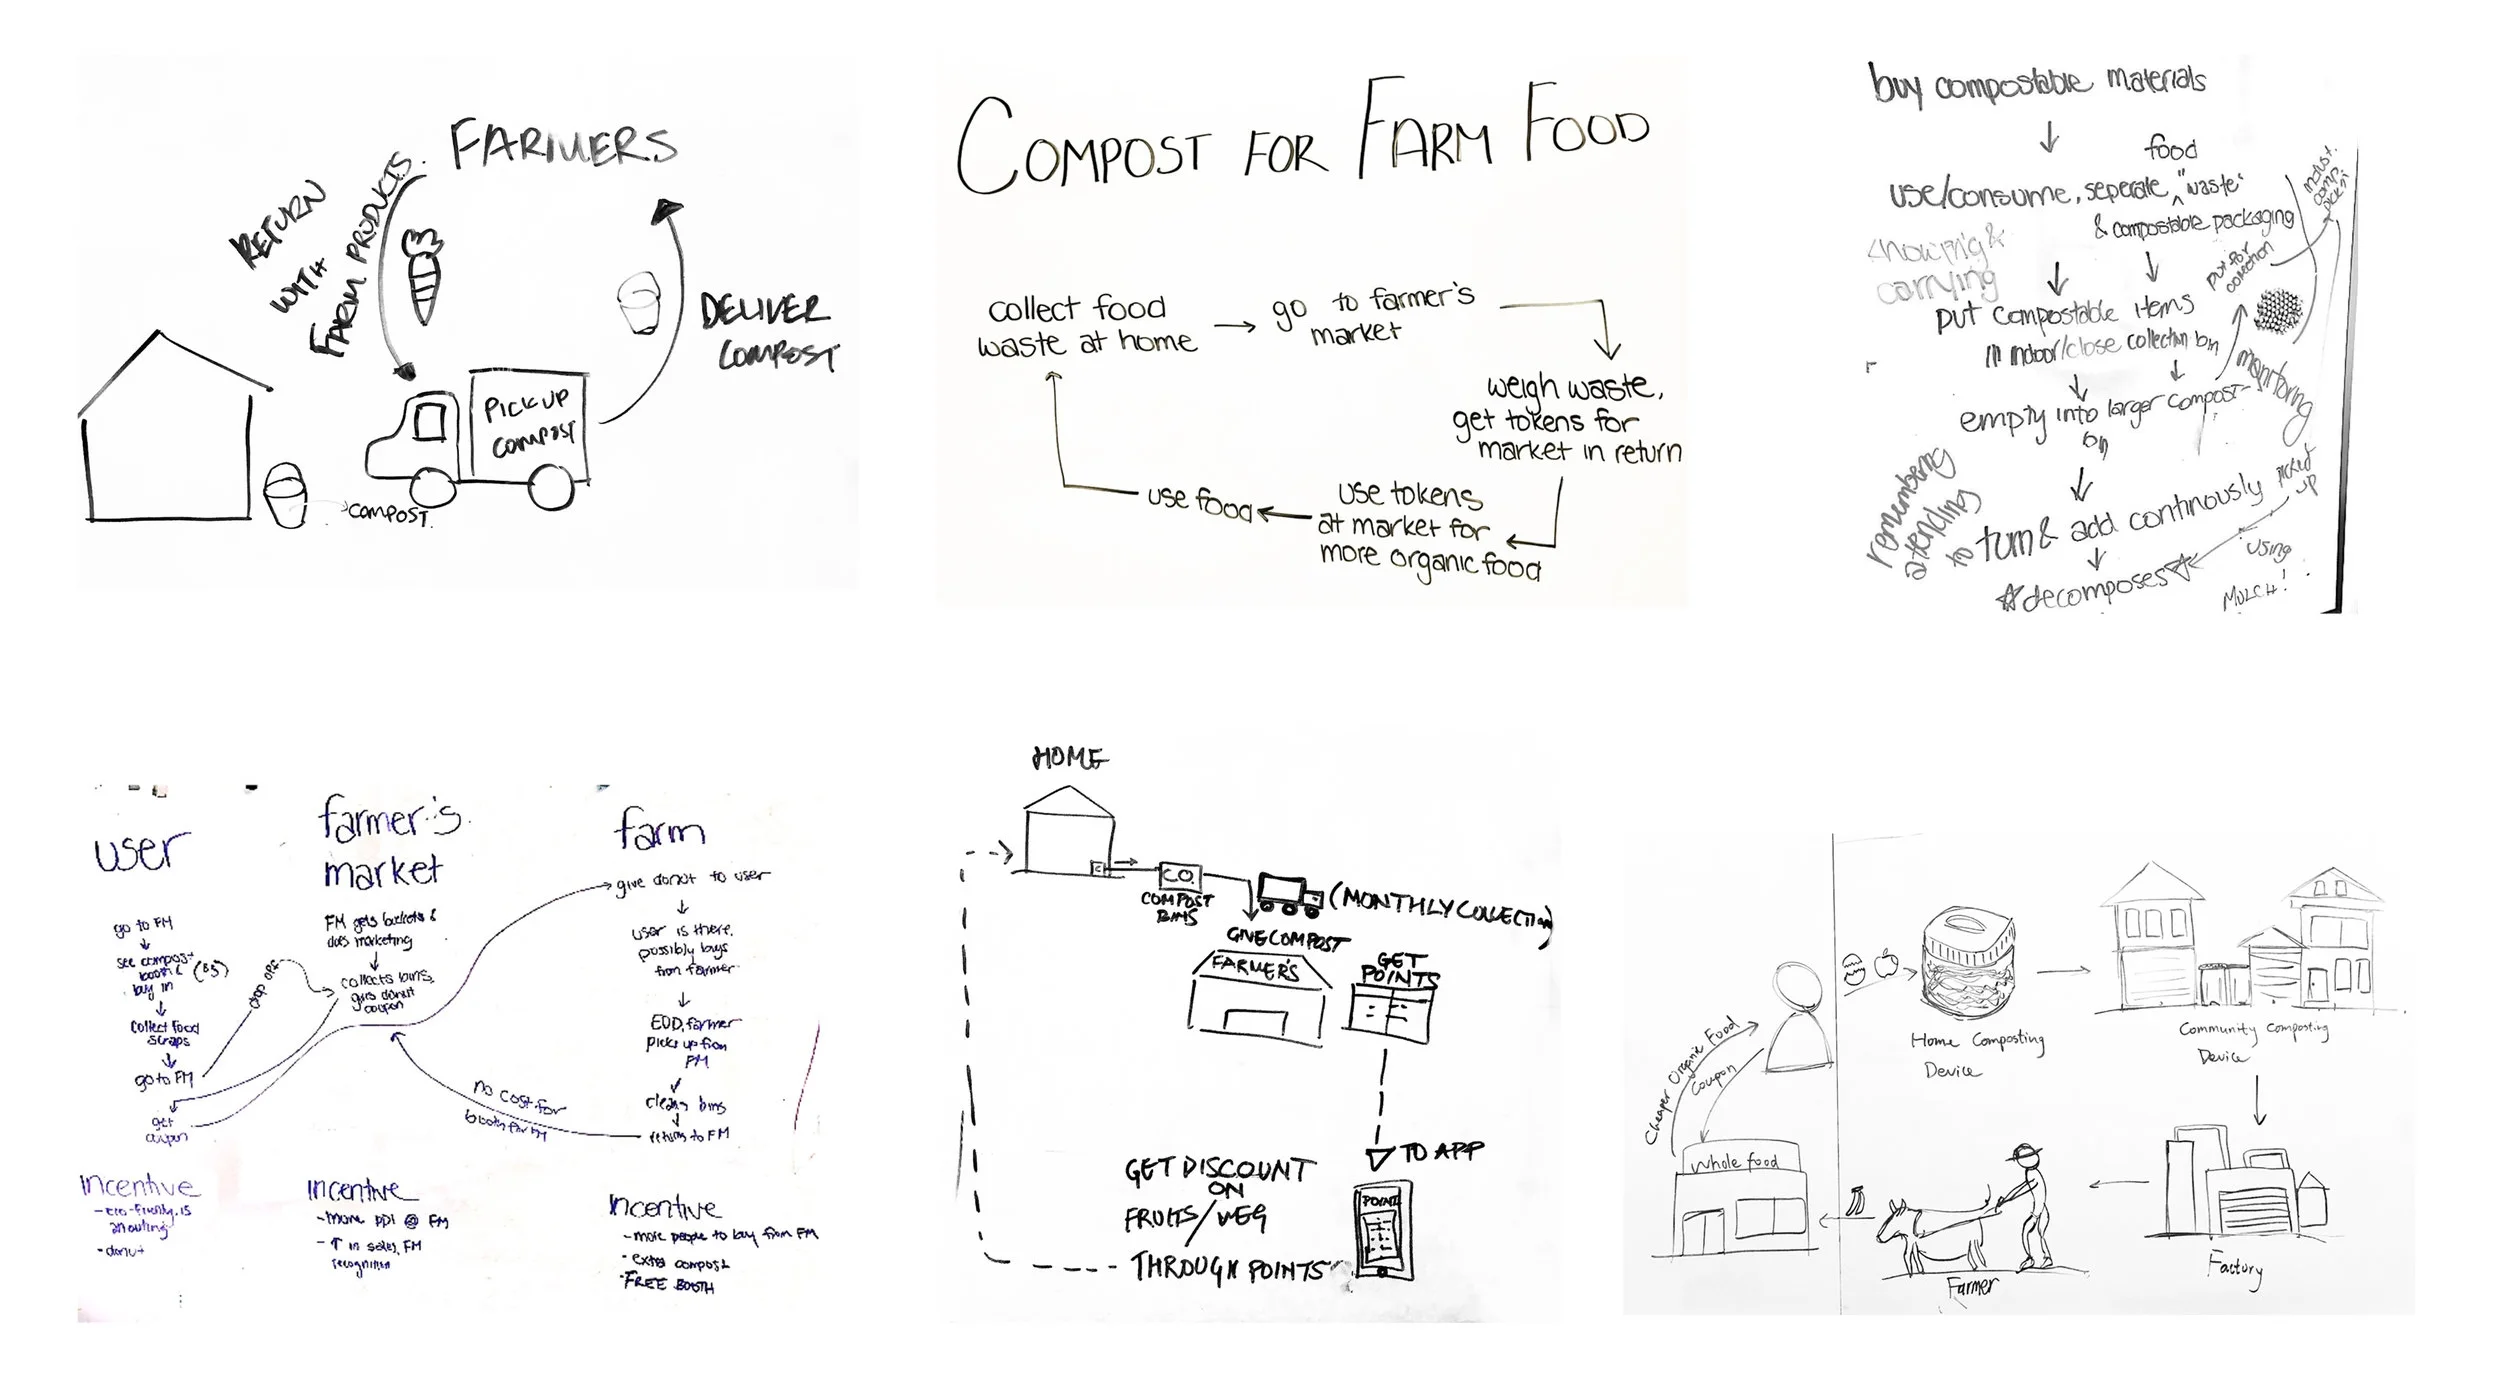 FARMERS
RETURN
WITH
FARM PRODUCTS.
DELIVER
COMPOST
PICKUP
COMPOST
COMPOST.
COMPOST FOR FARM FOOD
collect food
waste at home
go to farmer's
market
weigh waste,
get tokens for
market in return
use tokens
at market for
more organic food
use food
buy compostable materials
food
use/consume, seperate "waste"
& compostable packaging
carrying
put for
collection
put compostable items
in indoor/close collection bin
monitoring
empty into larger compost
bin
remembering
attending
to turn & add continously
picked
up
decomposes
using
MULCH!
user
go to FM
see compost
booth &
buy in
($5)
collect food
scraps
go to FM
get
coupon
drop off
incentive
- eco-friendly is
an outing
- donut
farmer's
market
FM gets buckets &
does marketing
collects bins,
gives donut
coupon
no cost for
booth for FM
incentive
- more ppl @ FM
- ↑ in sales, FM
recognition
farm
give donut to user
user is there,
possibly buys
from farmer
EOD, farmer
picks up from
FM
cleans bins
returns to FM
incentive
- more people to buy from FM
- extra compost
- FREE BOOTH
HOME
C
CO.
COMPOST
BINS
(MONTHLY COLLECTION)
GIVE COMPOST
FARMER'S
GET
POINTS
TO APP
POINT
GET DISCOUNT
ON
FRUITS/VEG
THROUGH POINTS
Home Composting
Device
Community Composting
Device
Factory
Farmer
Whole food
Coupon
Cheaper Organic Food